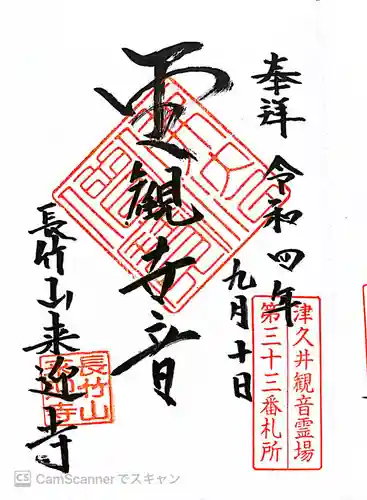 奉拝
令和四年
九月十日
津久井観音霊場
第三十三番札所
聖観世音
長竹山来迎寺
長竹山
来迎寺
CS CamScannerでスキャン